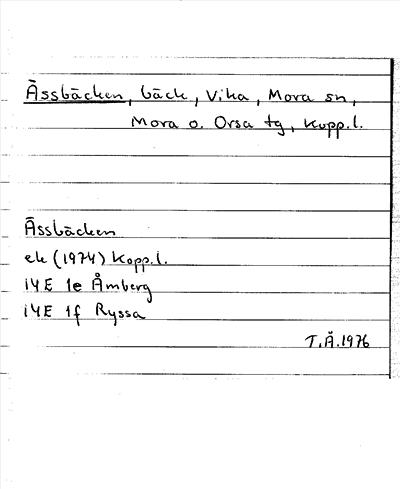 Ässbäcken, bäck, Vika, Mora sn,
Mora o. Orsa tg, Kopp.l.
Ässbäcken
ek (1974) Kopp.l.
14E 1e Åmberg
14E 1f Ryssa
T.Ä.1976